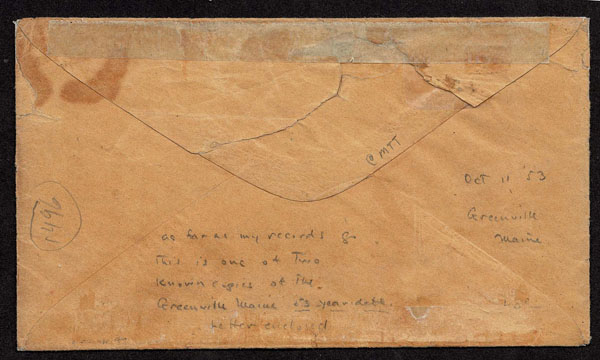 CMTT
Oct 11 '53
Greenville
Maine
1496
as far as my records go
This is one of Two
known copies of The
Greenville Maine 53 year date.
Letter enclosed